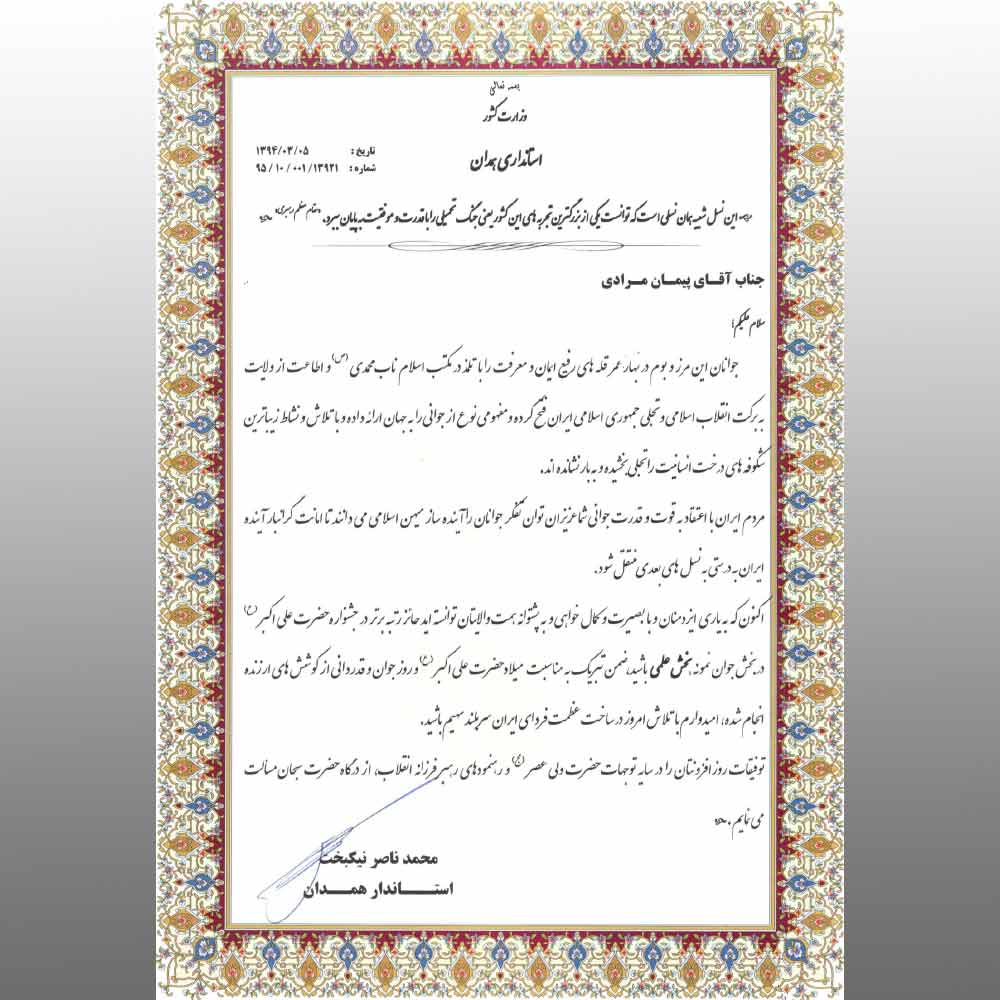 بسمه تعالی
وزارت کشور
استانداری همدان
تاریخ : ۱۳۹۴/۰۳/۰۵
شماره : ۹۵/۱۰/۰۰۱/۱۳۹۲۱
این نسل شبیه همان نسلی است که توانست یکی از بزرگترین تجربه های این کشور یعنی جنگ تحمیلی را با قدرت و موفقیت به پایان ببرد. «مقام معظم رهبری»
جناب آقـای پیمـان مـرادی
سلام علیکم؛
جوانان این مرز و بوم در بهار عمر قله های رفیع ایمان و معرفت را با تلمذ در مکتب اسلام ناب محمدی (ص) و اطاعت از ولایت
به برکت انقلاب اسلامی و تجلی جمهوری اسلامی ایران فتح کرده و مفهومی نوع از جوانی را به جهان ارائه داده و با تلاش و نشاط زیباترین
شکوفه های درخت انسانیت را تجلی بخشیده و به بار نشانده اند.
مردم ایران با اعتقاد به قوت و قدرت جوانی شما عزیزان توان تفکر جوانان را آینده ساز میهن اسلامی می دانند تا امانت گرانبار آینده
ایران به درستی به نسل های بعدی منتقل شود.
اکنون که به یاری ایزد منان و با بصیرت و کمال خواهی و به پشتوانه همت والایتان توانسته اید حائز رتبه برتر در جشنواره حضرت علی اکبر (ع)
در بخش جوان نمونه بخش علمی باشید، ضمن تبریک به مناسبت میلاد حضرت علی اکبر (ع) و روز جوان و قدردانی از کوشش های ارزنده
انجام شده، امیدوارم با تلاش امروز در ساخت عظمت فردای ایران سربلند سهیم باشید.
توفیقات روز افزونتان را در سایه توجهات حضرت ولی عصر (عج) و رهنمودهای رهبر فرزانه انقلاب، از درگاه حضرت سبحان مسألت
می نمایم.
محمد ناصر نیکبخت
استـــاندار همـــدان